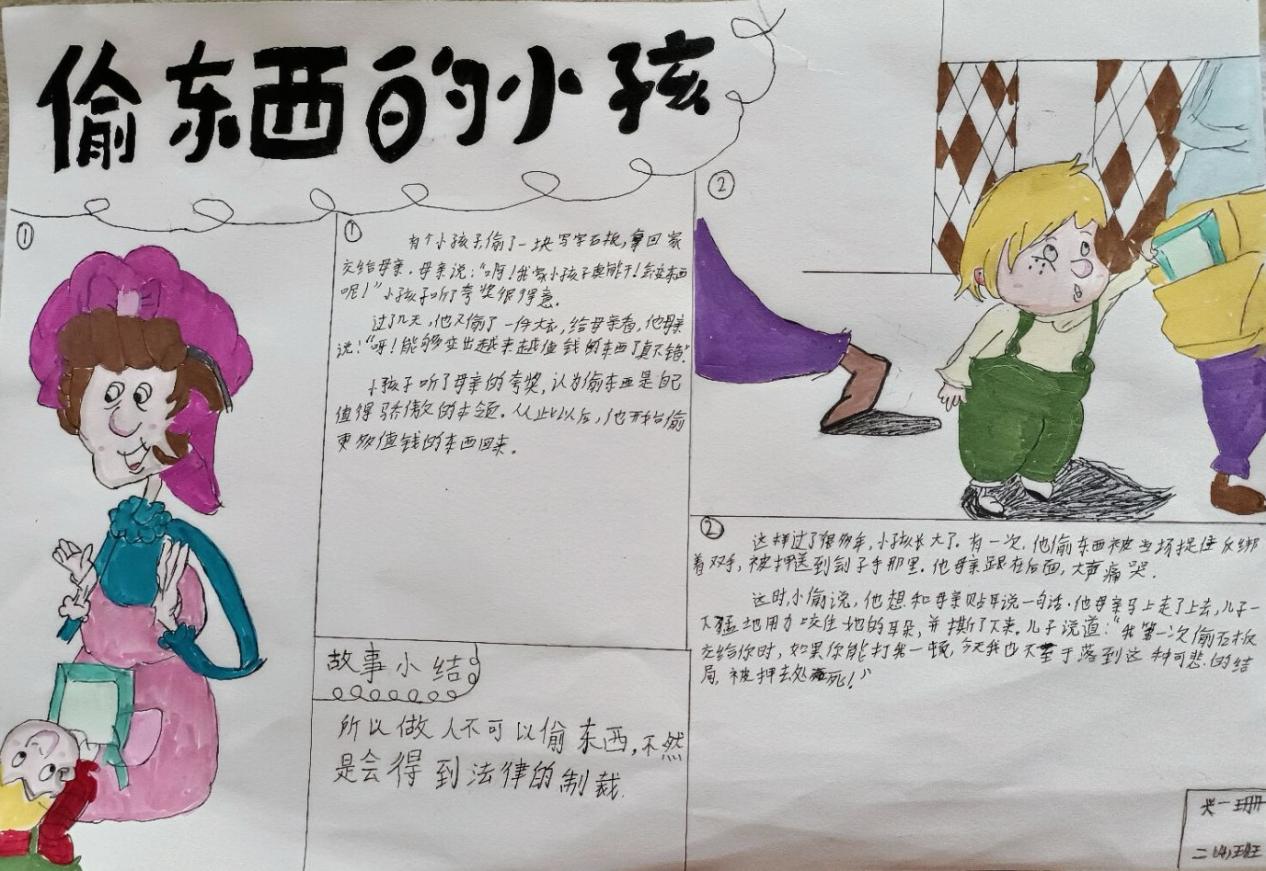 偷东西的小孩
①
①
有个小孩子,偷了一块写字石板,拿回家
交给母亲,母亲说:“呵!我家小孩子真能干!会变东西
呢!”小孩子听了夸奖很得意.
过了几天,他又偷了一件大衣,给母亲看,他母亲
说:“呀!能够变出越来越值钱的东西了真不错”.
小孩子听了母亲的夸奖,认为偷东西是自己
值得骄傲的本领.从此以后,他开始偷
更多值钱的东西回来。
故事小结
所以做人不可以偷东西,不然
是会得到法律的制裁.
②
②
这样过了很多年,小孩长大了.有一次.他偷东西被当场捉住反绑
着双手,被押送到刽子手那里.他母亲跟在后面,大声痛哭.
这时,小偷说,他想和母亲贴耳说一句话.他母亲马上走了上去,儿子一
下猛地用力咬住她的耳朵,并撕了下来.儿子说道:“我第一次偷石板
交给你时,如果你能打我一顿,今天我也不至于落到这种可悲的结
局,被押去处死!”
一珊
二(4)班